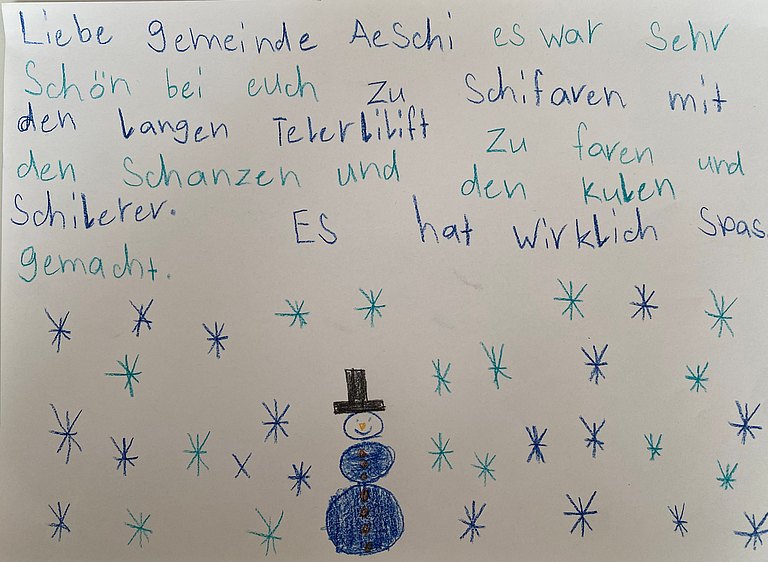 Liebe gemeinde Aeschi es war sehr
Schön bei euch zu Schifaren mit
den Langen Telerlilift zu faren und
den Schanzen und den kulen
Schilerer. Es hat wirklich Spas
gemacht.